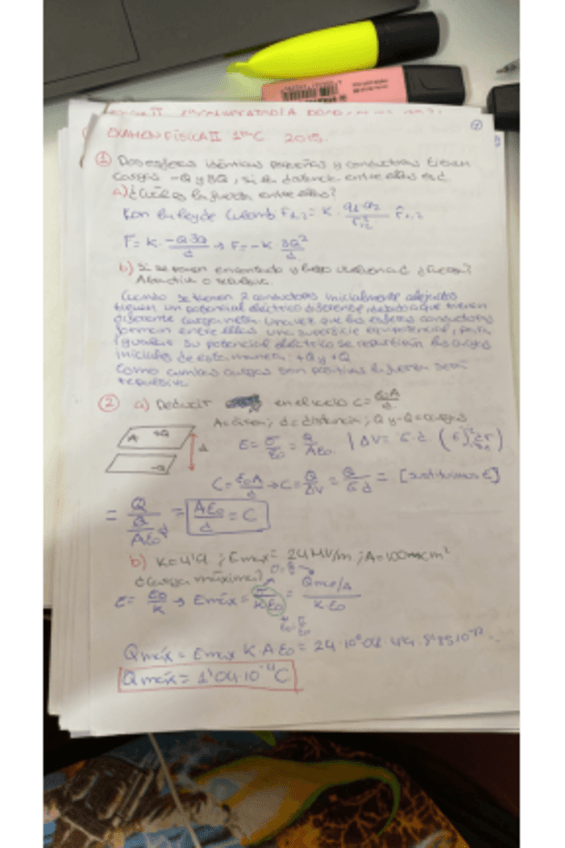 EXAMEN FÍSICA II 1er C 2015.
① Dos esferas idénticas pequeñas y conductoras tienen
cargas -Q y 3Q, si la distancia entre ellas es d.
a) ¿Cuál es la fuerza entre ellas?
Con la ley de Coulomb F₁,₂ = K · q₁·q₂
F = K · -Q3Q/d → F = -K 3Q²/d
b) Si se ponen en contacto y luego vuelven a d ¿Fuerza?
Atractiva o repulsiva.
Cuando se tienen 2 conductores inicialmente alejados
tienen un potencial eléctrico diferente debido a que tienen
diferente carga neta. Una vez que las esferas conductoras
forman entre ellas una superficie equipotencial, para
igualar su potencial eléctrico se repartirán las cargas
iniciales de esta manera: +Q y +Q
Como ambas cargas son positivas la fuerza será
repulsiva
② a) Deducir en el vacío C = ε₀A/d
A=área; d=distancia; Q y -Q=cargas
A +Q d -Q
E = σ/ε₀ = Q/Aε₀ | ΔV = E·d
C = ε₀A/d → C = Q/ΔV = Q/E·d = [sustituimos E]
= Q / (Q/Aε₀ d) = Aε₀/d = C
b) K=4'9; Emax = 24 MV/m; A=100
¿Carga máxima?
E = E₀/K → Emáx = σ/K·ε₀ = Qmáx/A / K·ε₀
Qmáx = Emax K·A·ε₀ = 24·10⁶
Qmáx = 1'04·10⁻¹¹ C